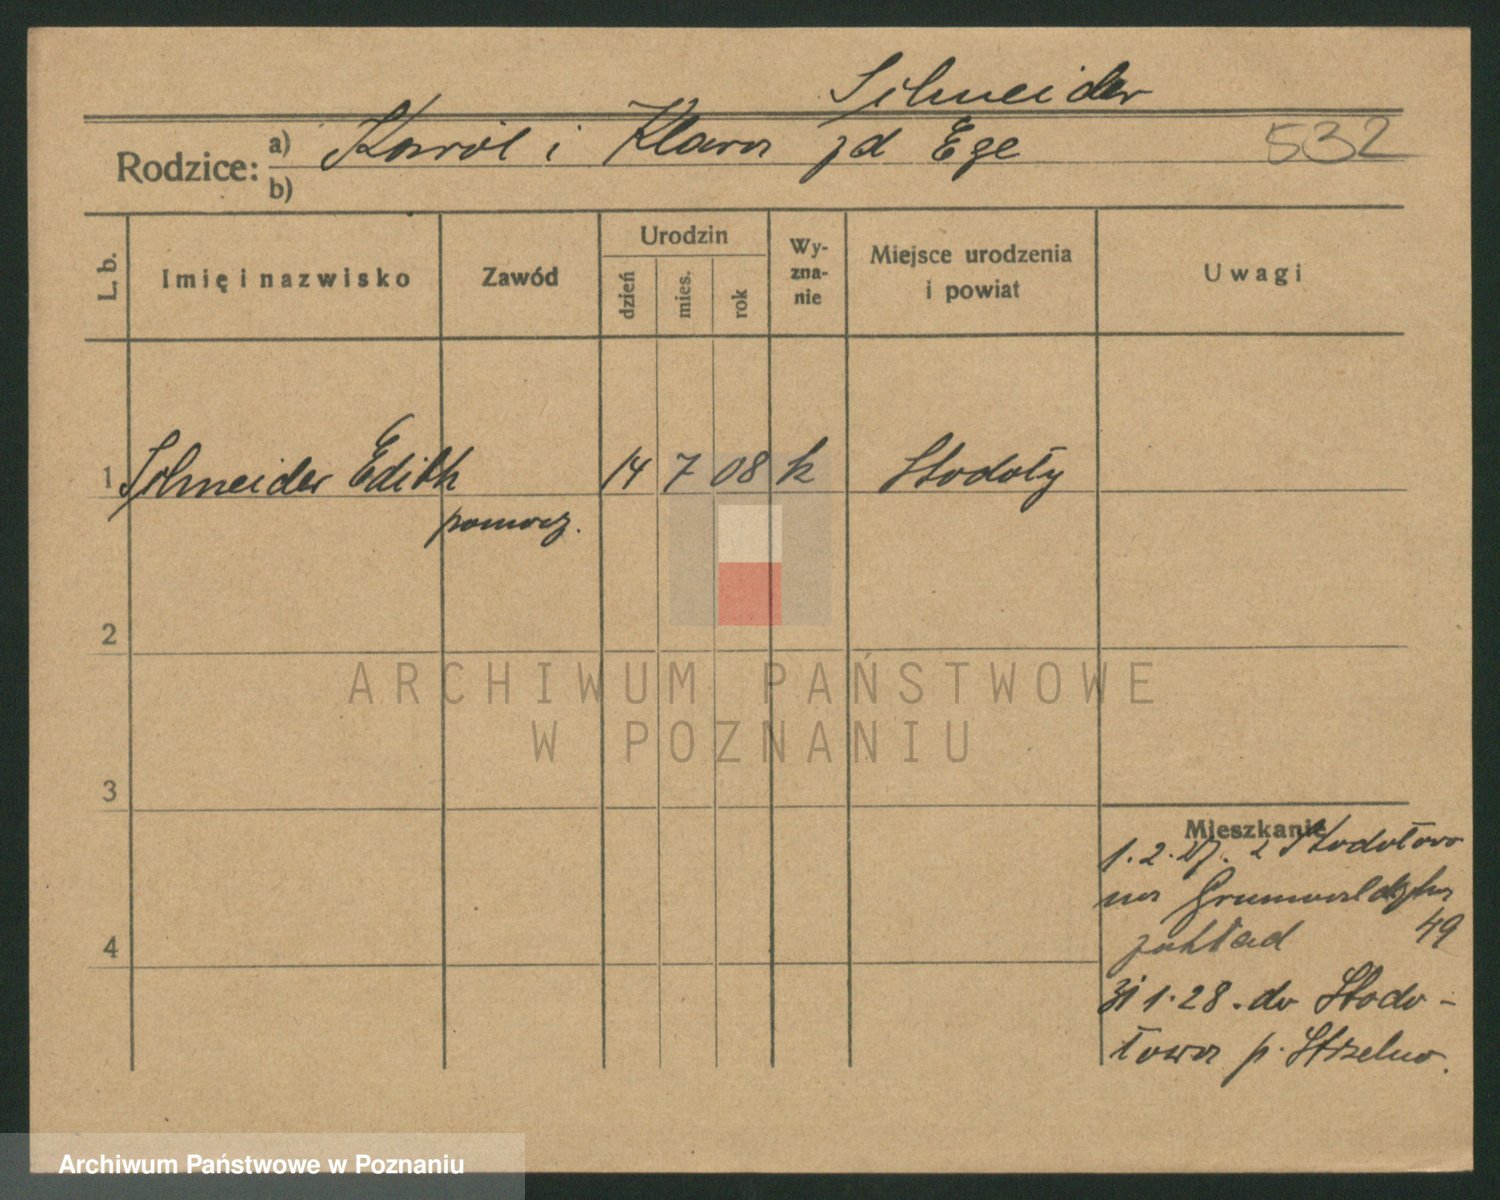 Schneider
Rodzice: a) Karol i Klara zd Ege 532
b)
L. b. Imię i nazwisko Zawód Urodzin dzień mies. rok Wyzna-nie Miejsce urodzenia i powiat Uwagi
1 Schneider Edith 14 7 08 k Stodoły
pomocz.
2
ARCHIWUM PAŃSTWOWE
W POZNANIU
3
Mieszkanie
1.2.27. z Stodołowa
na Grunwaldzka
zakład 49
31 1.28. do Stodo-
łowa p. Strzelno.
4
Archiwum Państwowe w Poznaniu